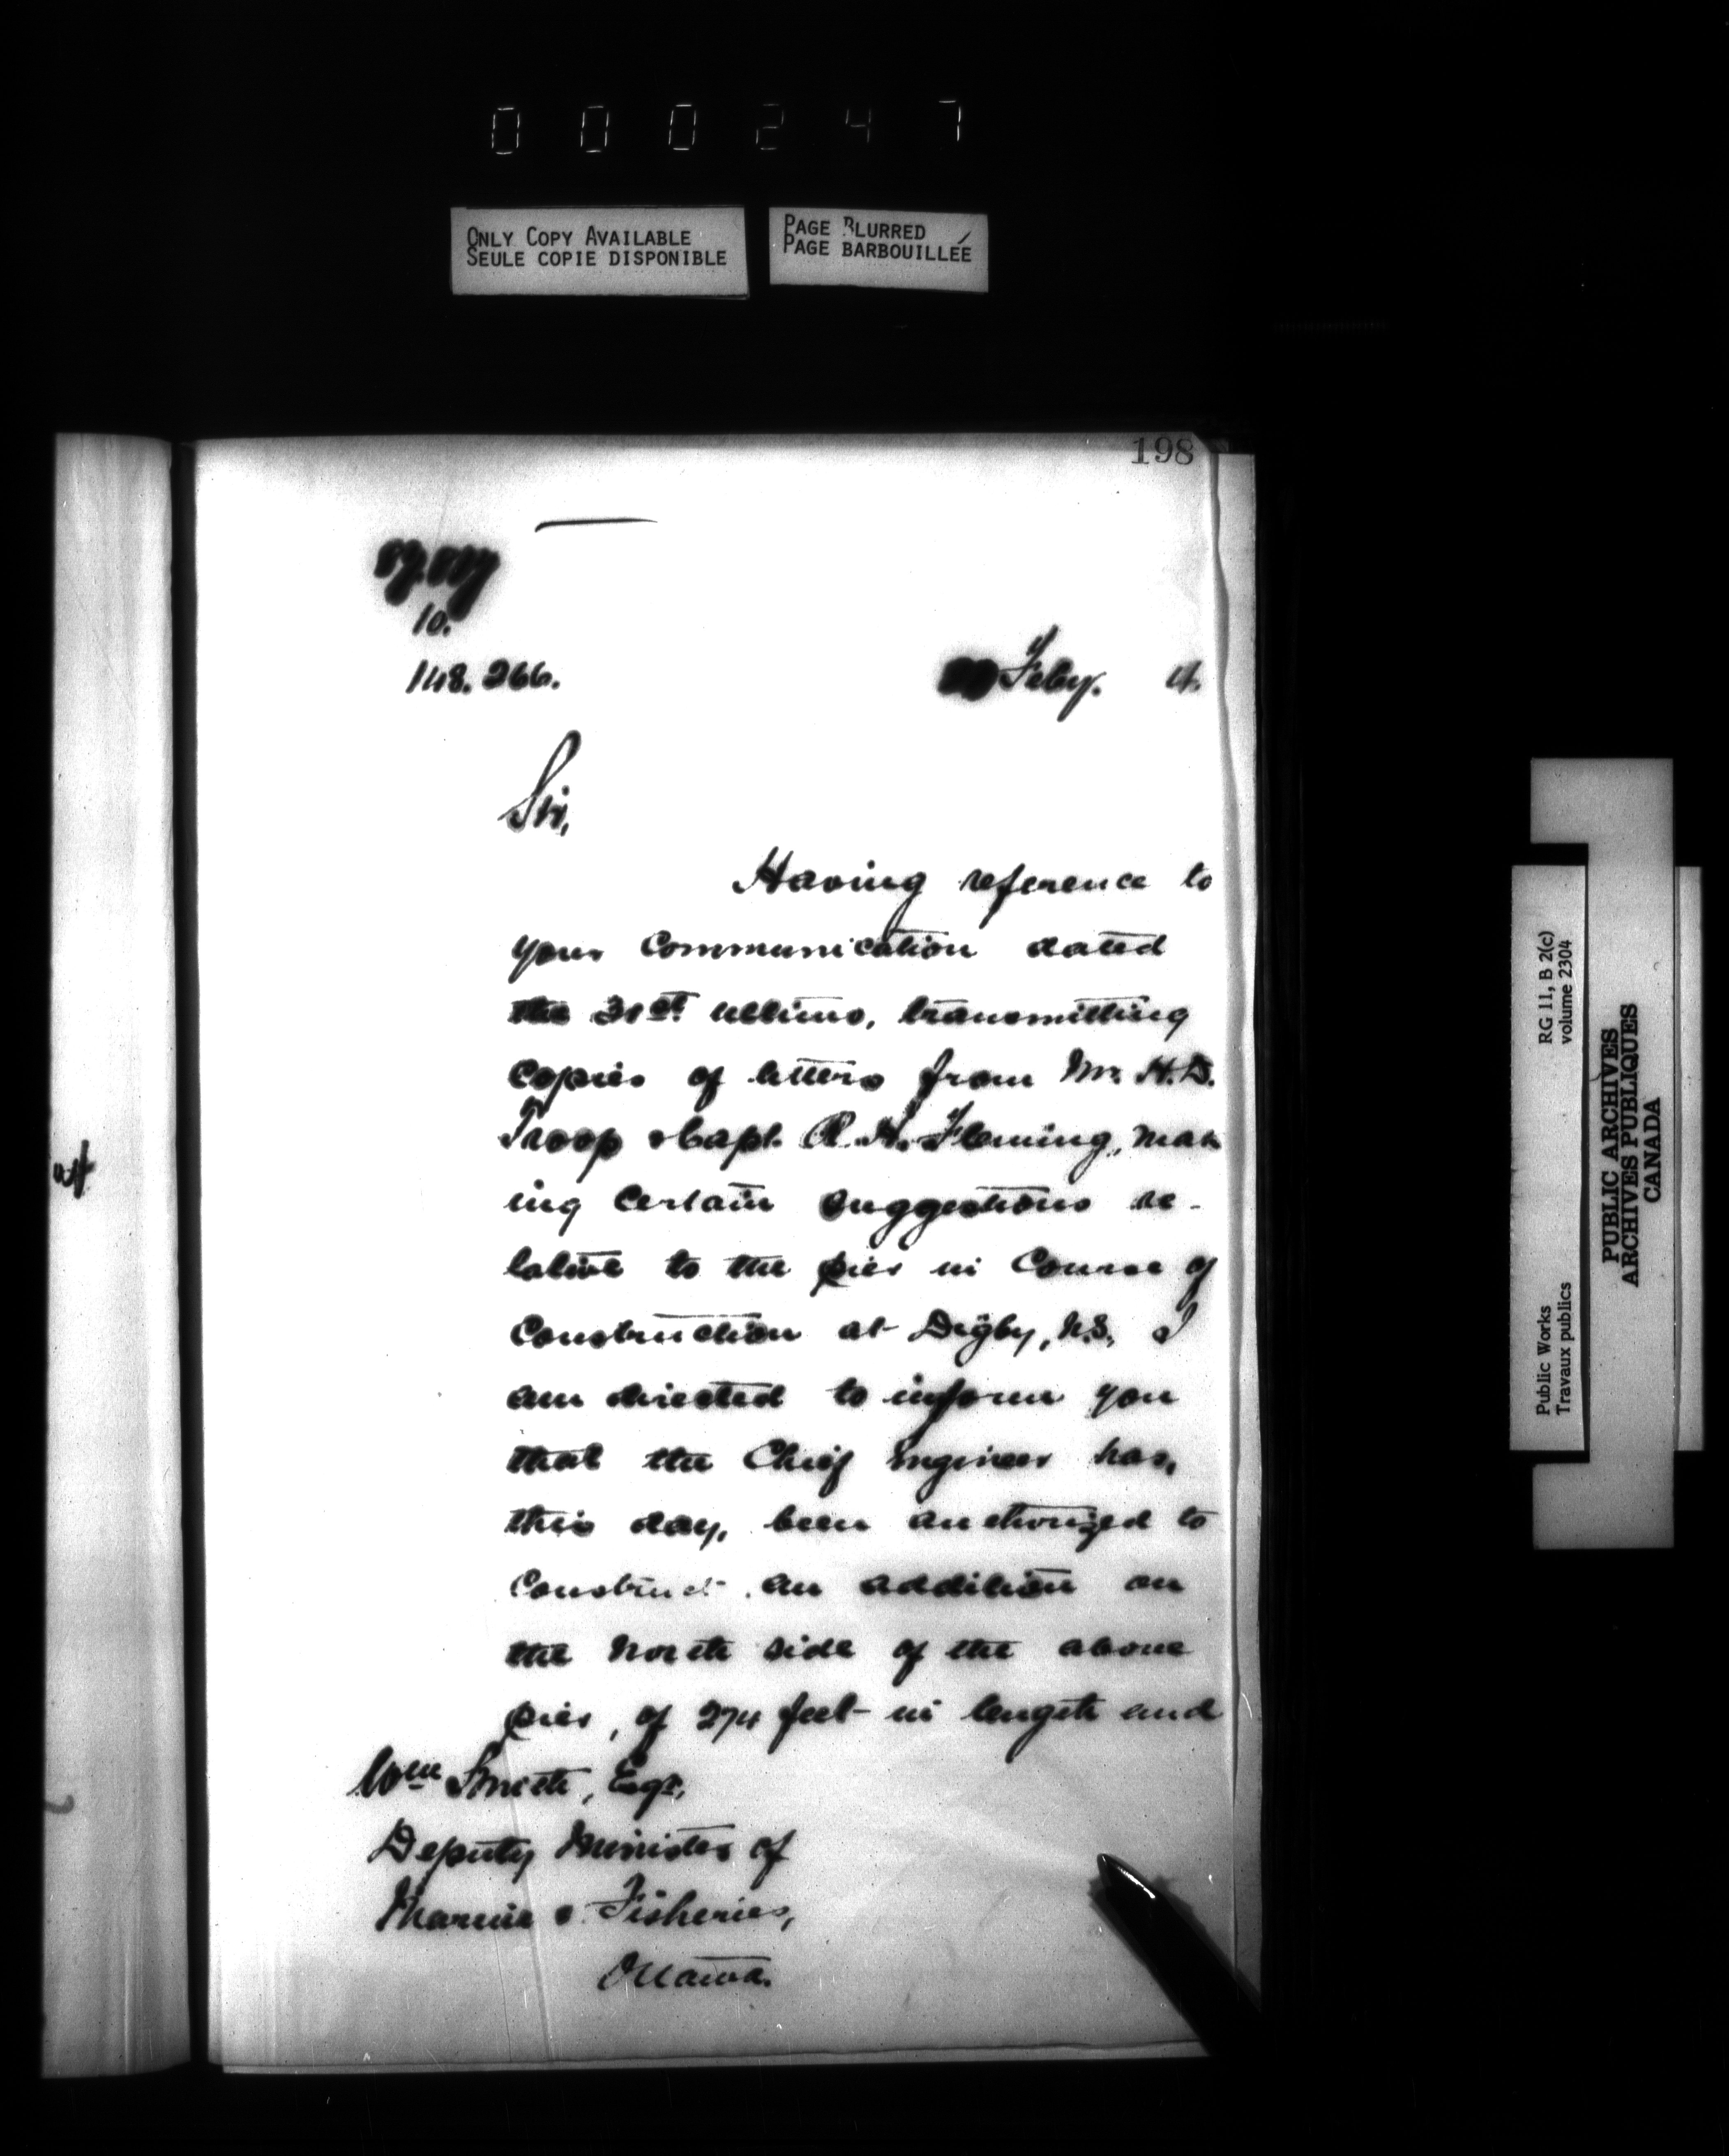 000247
ONLY COPY AVAILABLE
SEULE COPIE DISPONIBLE
PAGE BLURRED
PAGE BARBOUILLÉE
198
10.
148.266.
Feby. 4.
Sir,
Having reference to
your Communication dated
the 31st ultimo, transmitting
Copies of letters from Mr. H.D.
Troop & Capt. R. H. Fleming, mak
ing Certain suggestions re-
lative to the pier in Course of
Construction at Digby, N.S., I
am directed to inform you
that the Chief Engineer has,
this day, been authorized to
Construct an addition on
the North side of the above
pier, of 274 feet in length and
Wm Smith, Esqr,
Deputy Minister of
Marine & Fisheries,
Ottawa.
RG 11, B 2(c)
volume 2304
Public Works
Travaux publics
PUBLIC ARCHIVES
ARCHIVES PUBLIQUES
CANADA